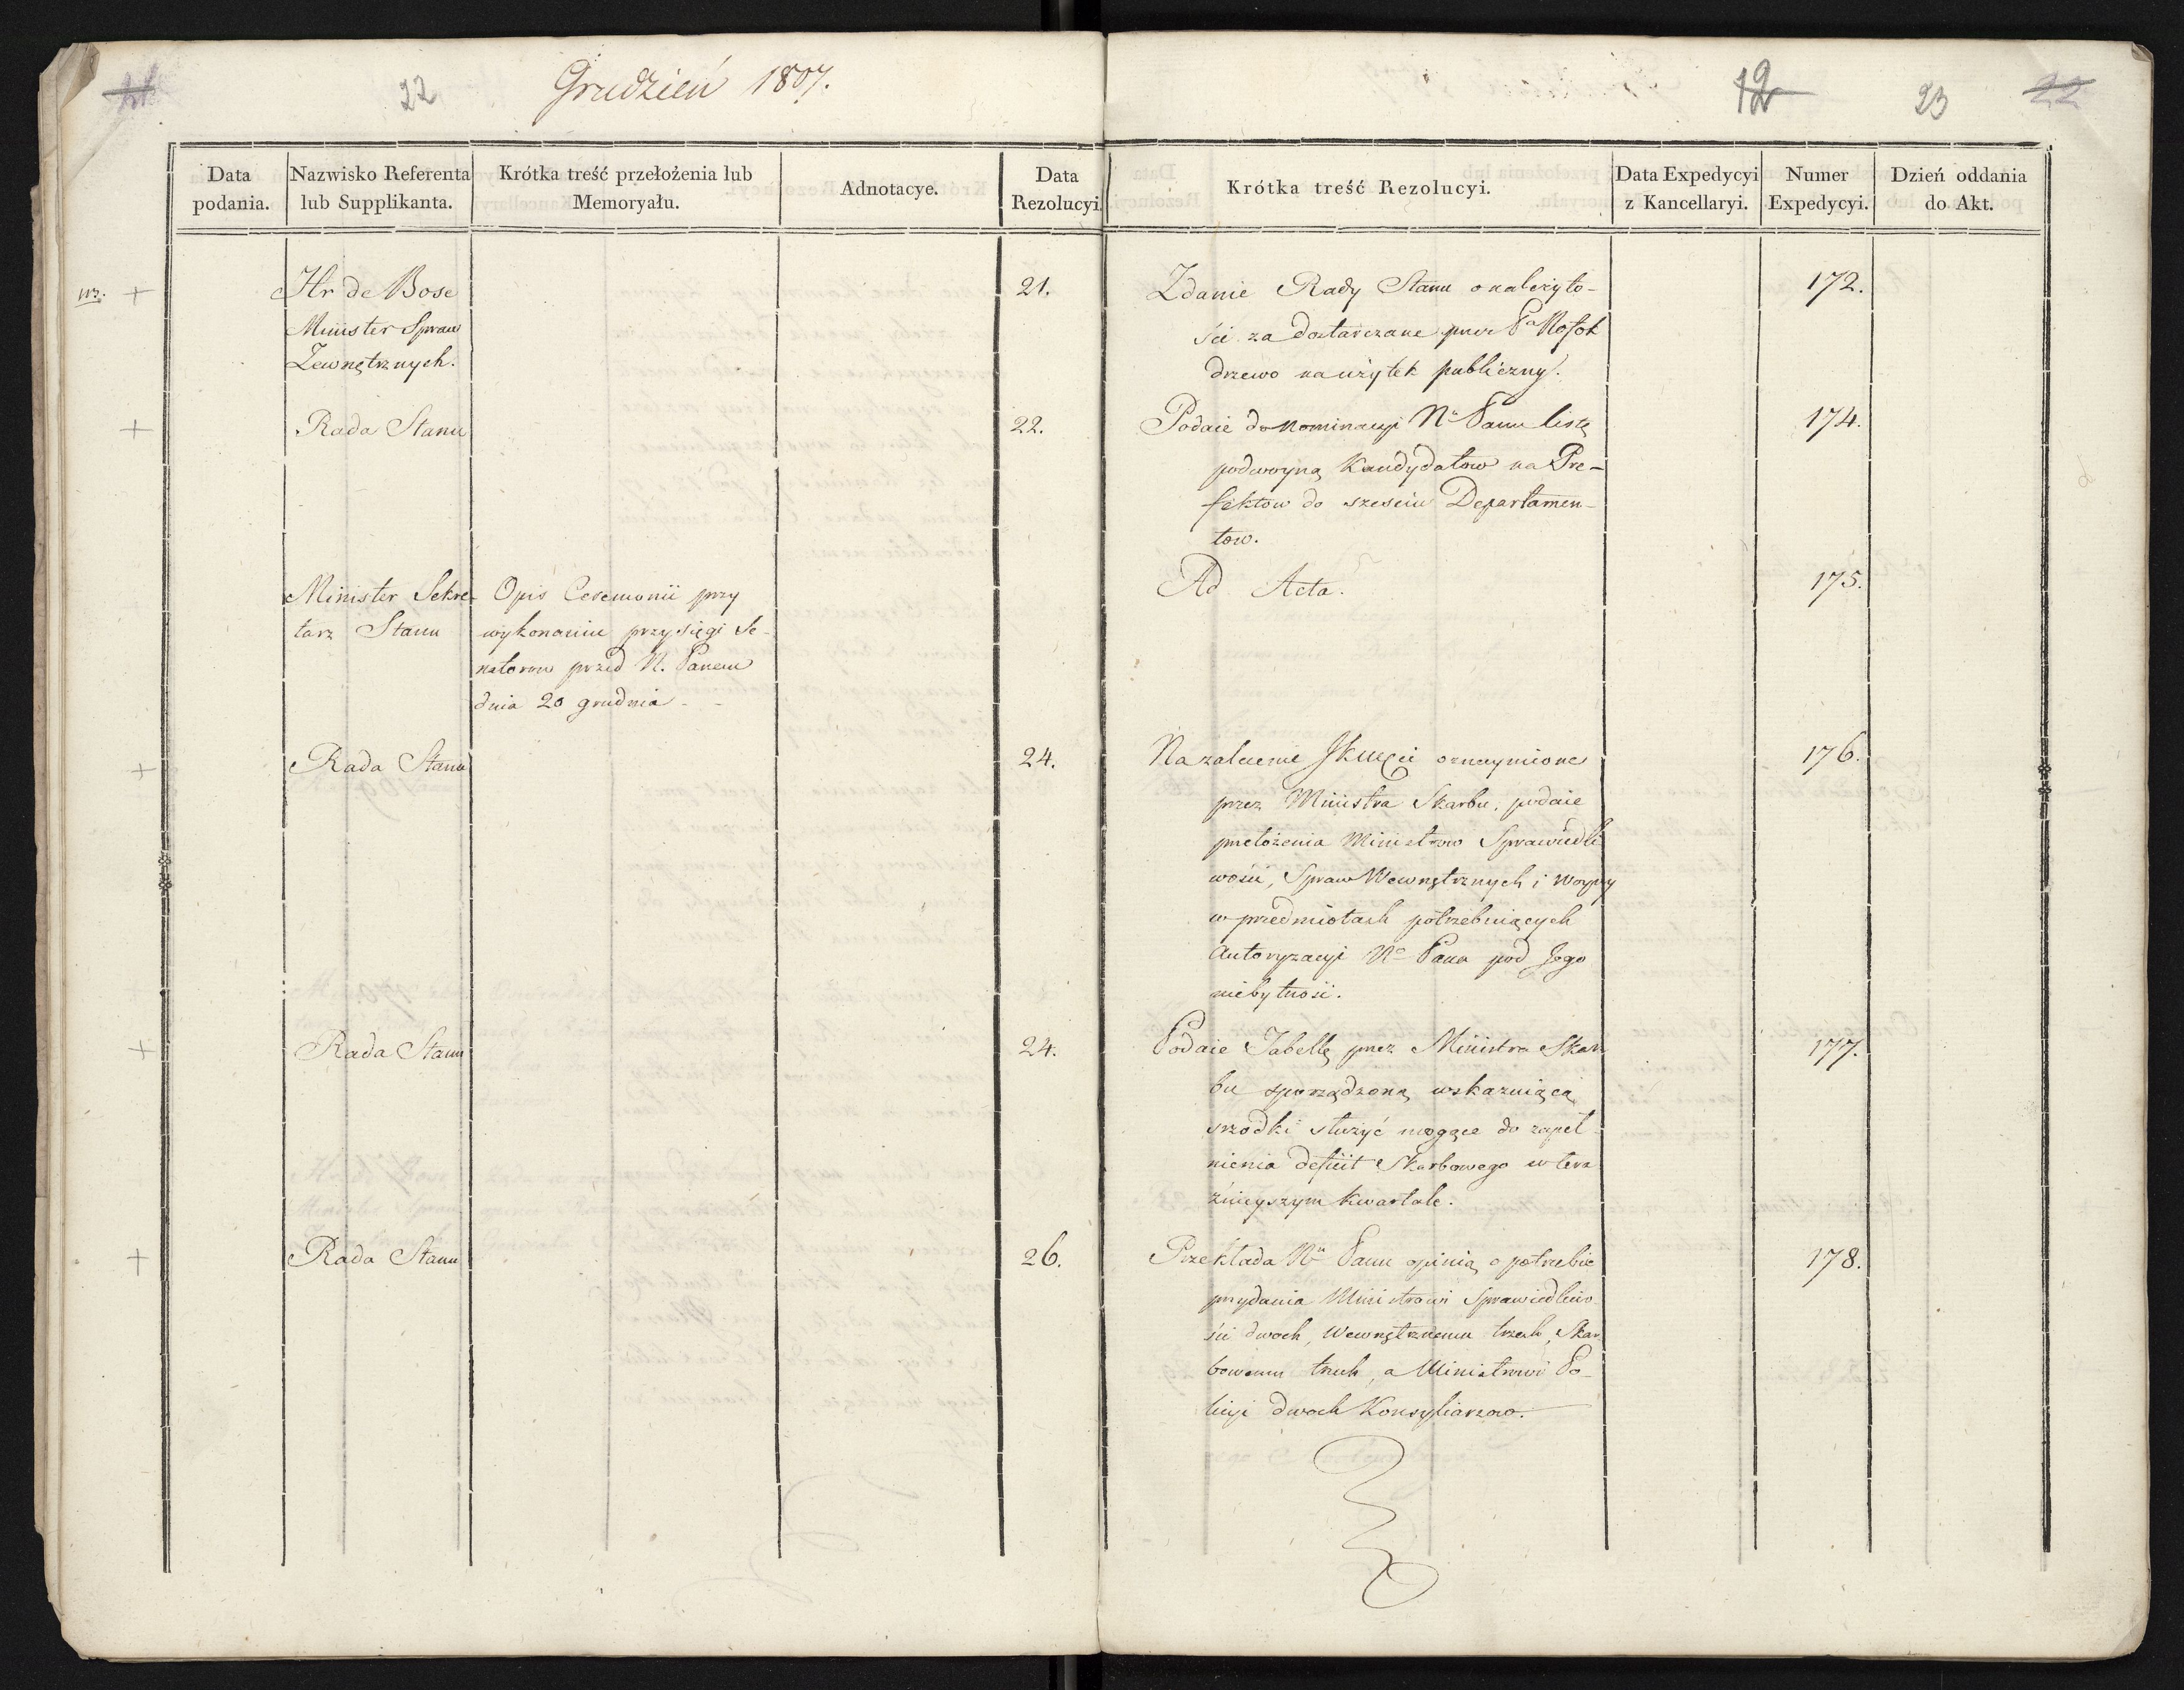 22
Grudzień 1807.
12
23
22
Data podania.
Nazwisko Referenta lub Supplikanta.
Krótka treść przełożenia lub Memoryału.
Adnotacye.
Data Rezolucyi
Krótka treść Rezolucyi.
Data Expedycyi z Kancellaryi.
Numer Expedycyi.
Dzień oddania do Akt.
+
Hr de Bose
Minister Spraw
Zewnętrznych.
21.
Zdanie Rady Stanu o należyto-
ści za dostarczane przez
drzewo na użytek publiczny.
172.
+
Rada Stanu
22.
Podaie do Nominacyi Nu Panu listę
podwoyną Kandydatow na Pre-
fektow do szesciu Departamen-
tow.
174.
Minister Sekre-
tarz Stanu
Opis Ceremonii przy
wykonaniu przysięgi Se-
natorow przed N. Panem
dnia 20 grudnia - -
Ad Acta.
175.
+
Rada Stanu
24.
Na zalecenie oznaymione
przez Ministra Skarbu, podaie
przełożenia Ministrow Sprawiedli
wości, Spraw Wewnętrznych i Woyny
w przedmiotach potrzebuiących
Autoryzacyi Na Pana pod Jego
niebytność.
176.
+
Rada Stanu
24.
Podaie Tabellę przez Ministra Skar
bu sporządzoną wskazuiącą
srzodki służyć mogące do zapeł-
nienia deficit Skarbowego w tera
źnieyszym Kwartale.
177.
+
Rada Stanu
26.
Przekłada Nu Panu opinią o potrzebie
przydania Ministrowi Sprawiedliwo
ści dwoch, Wewnętrznemu trzech, Skar
bowemu trzech, a Ministrowi Po-
licyi dwoch Konsyliarzow.
178.